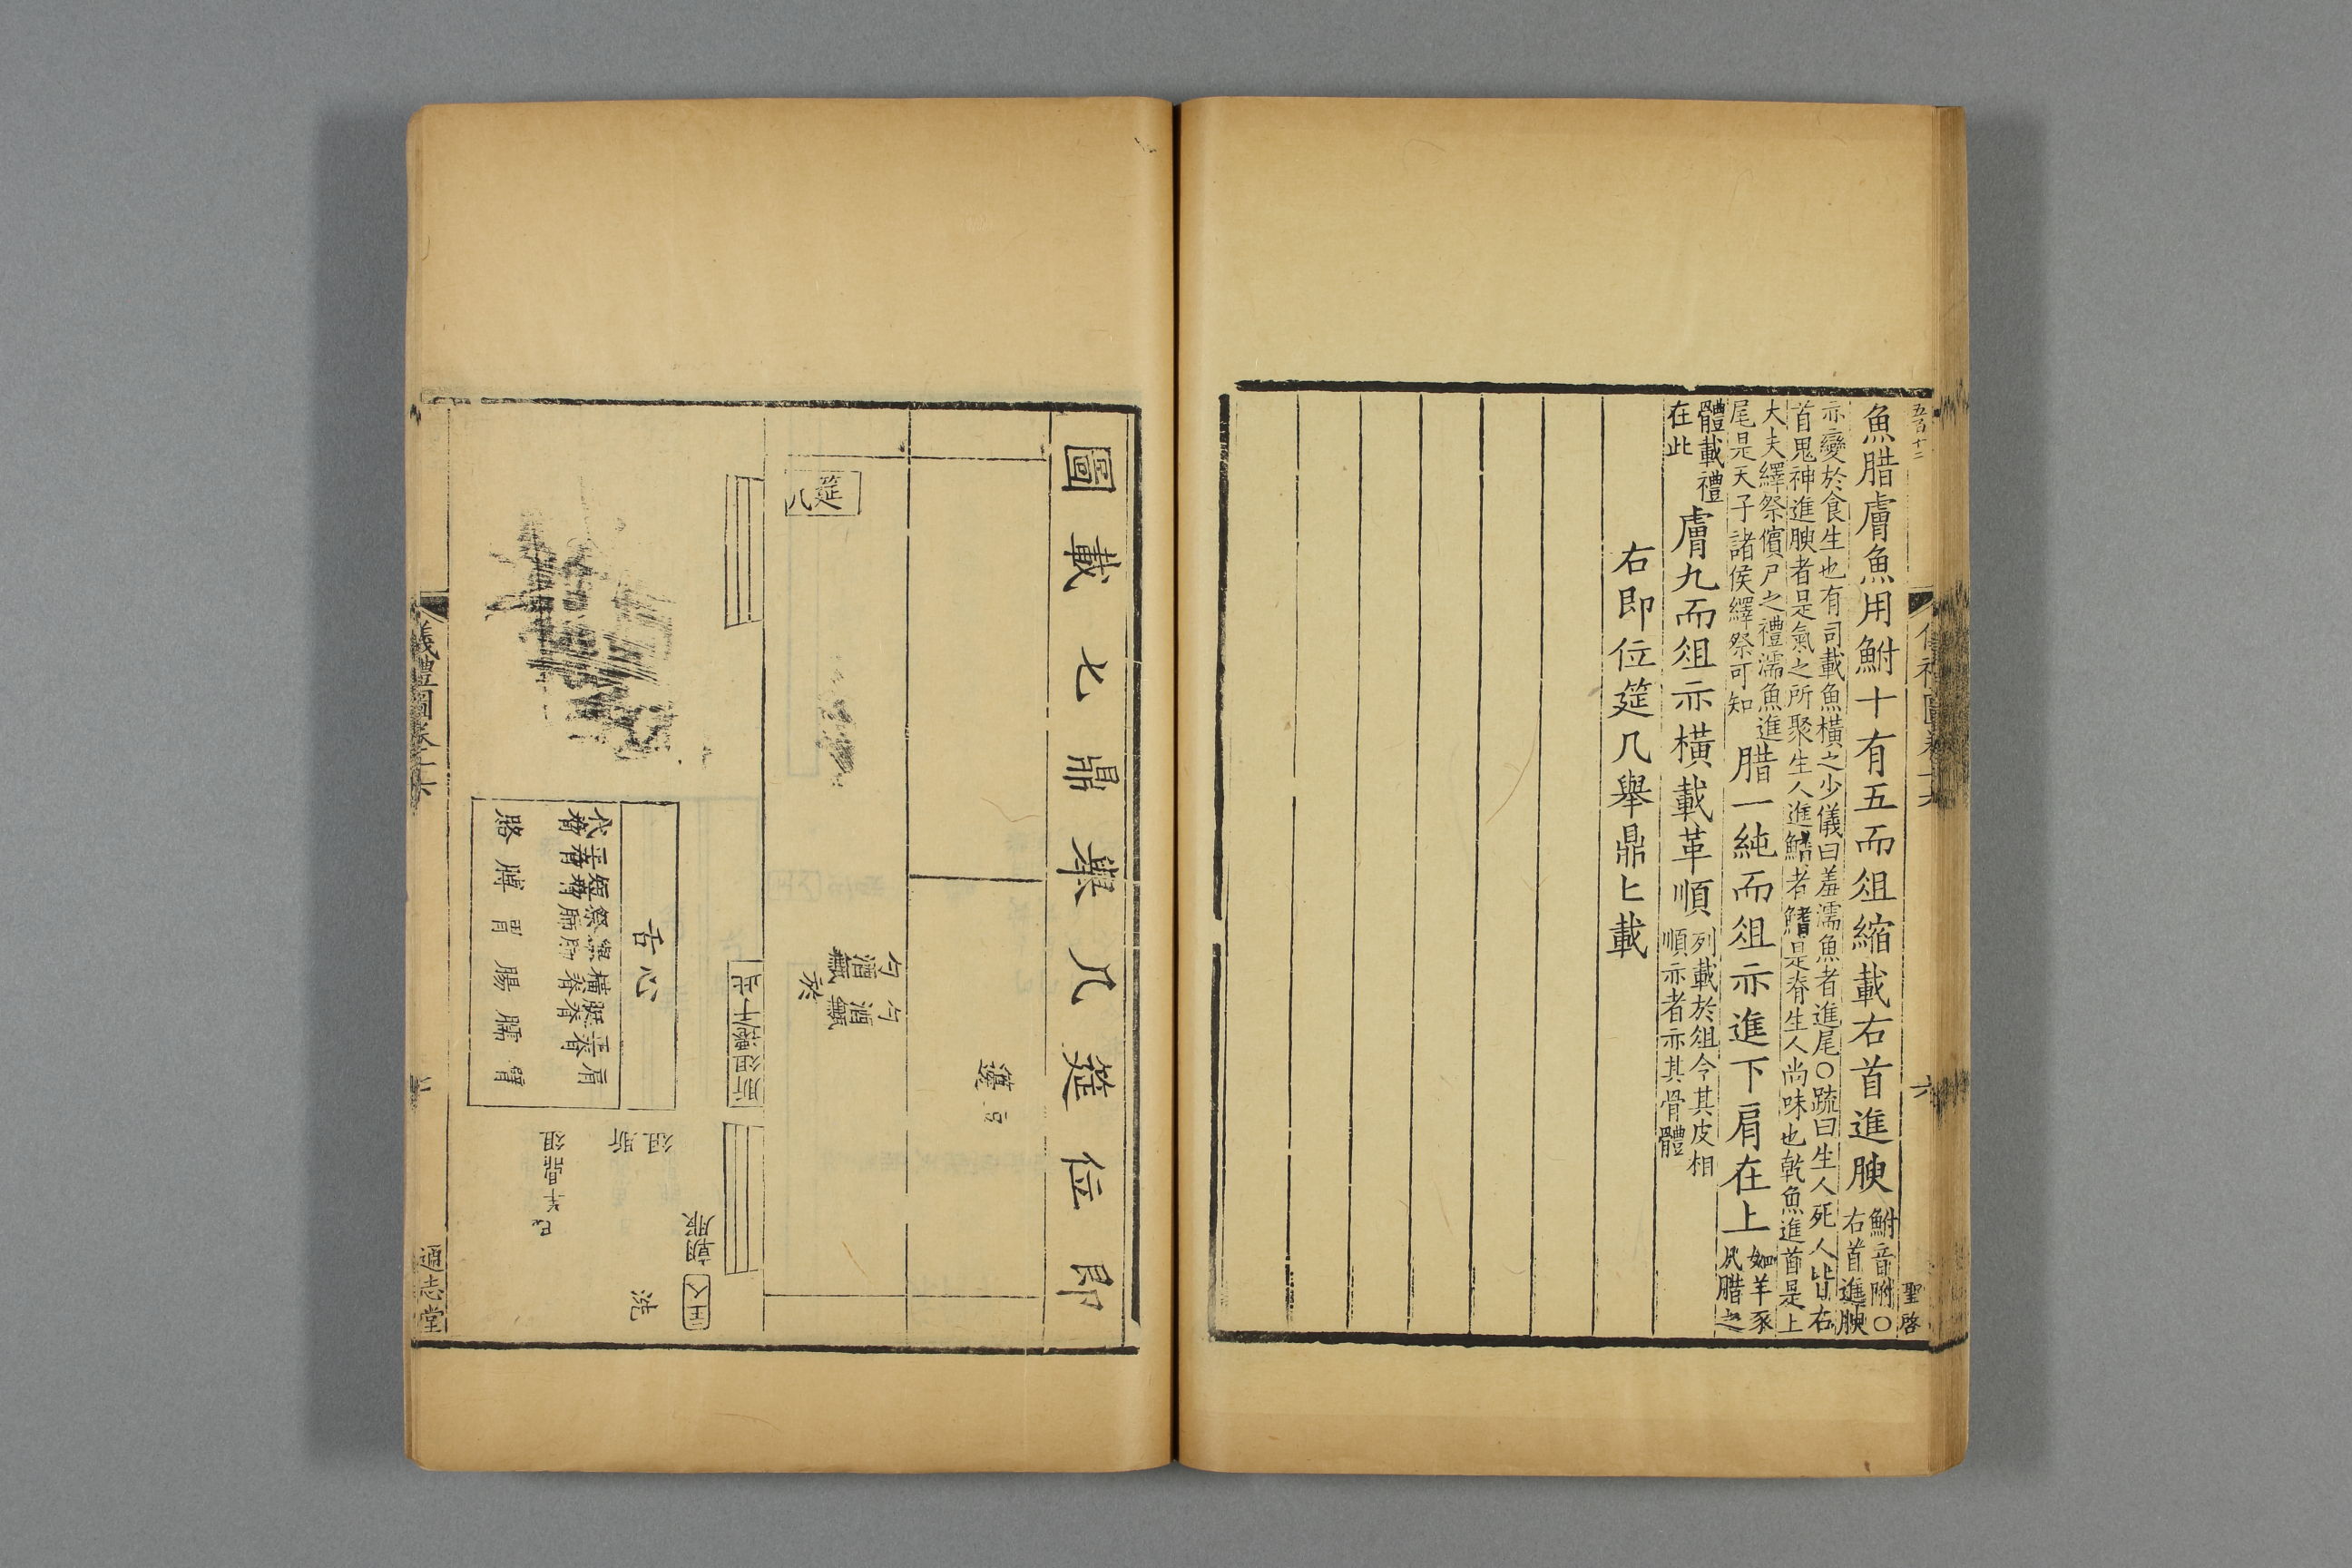 五百十二
魚腊膚魚用鮒十有五而俎縮載右首進腴
鮒音附○
右首進腴
亦變於食生也有司載魚橫之少儀曰羞濡魚者進尾○疏曰生人死人皆右
首鬼神進腴者是氣之所聚生人進鰭者鰭是脊生人尚味也乾魚進首是上
大夫繹祭儐尸之禮濡魚進
尾是天子諸侯繹祭可知
腊一純而俎亦進下肩在上
如羊豕
凡腊之
體載禮
在此
膚九而俎亦橫載革順
列載於俎令其皮相
順亦者亦其骨體
右即位筵几舉鼎匕載
六
聖啓
即位筵几舉鼎匕載圖
籩豆
勺 勺
酒甒 酒甒
棜
筵
几
主人
朝服
洗
肵俎
俎
羊鼎
匕
舌心
肩
臂
臑
腸
胃
膊
胳
儀禮圖卷十六
通志堂